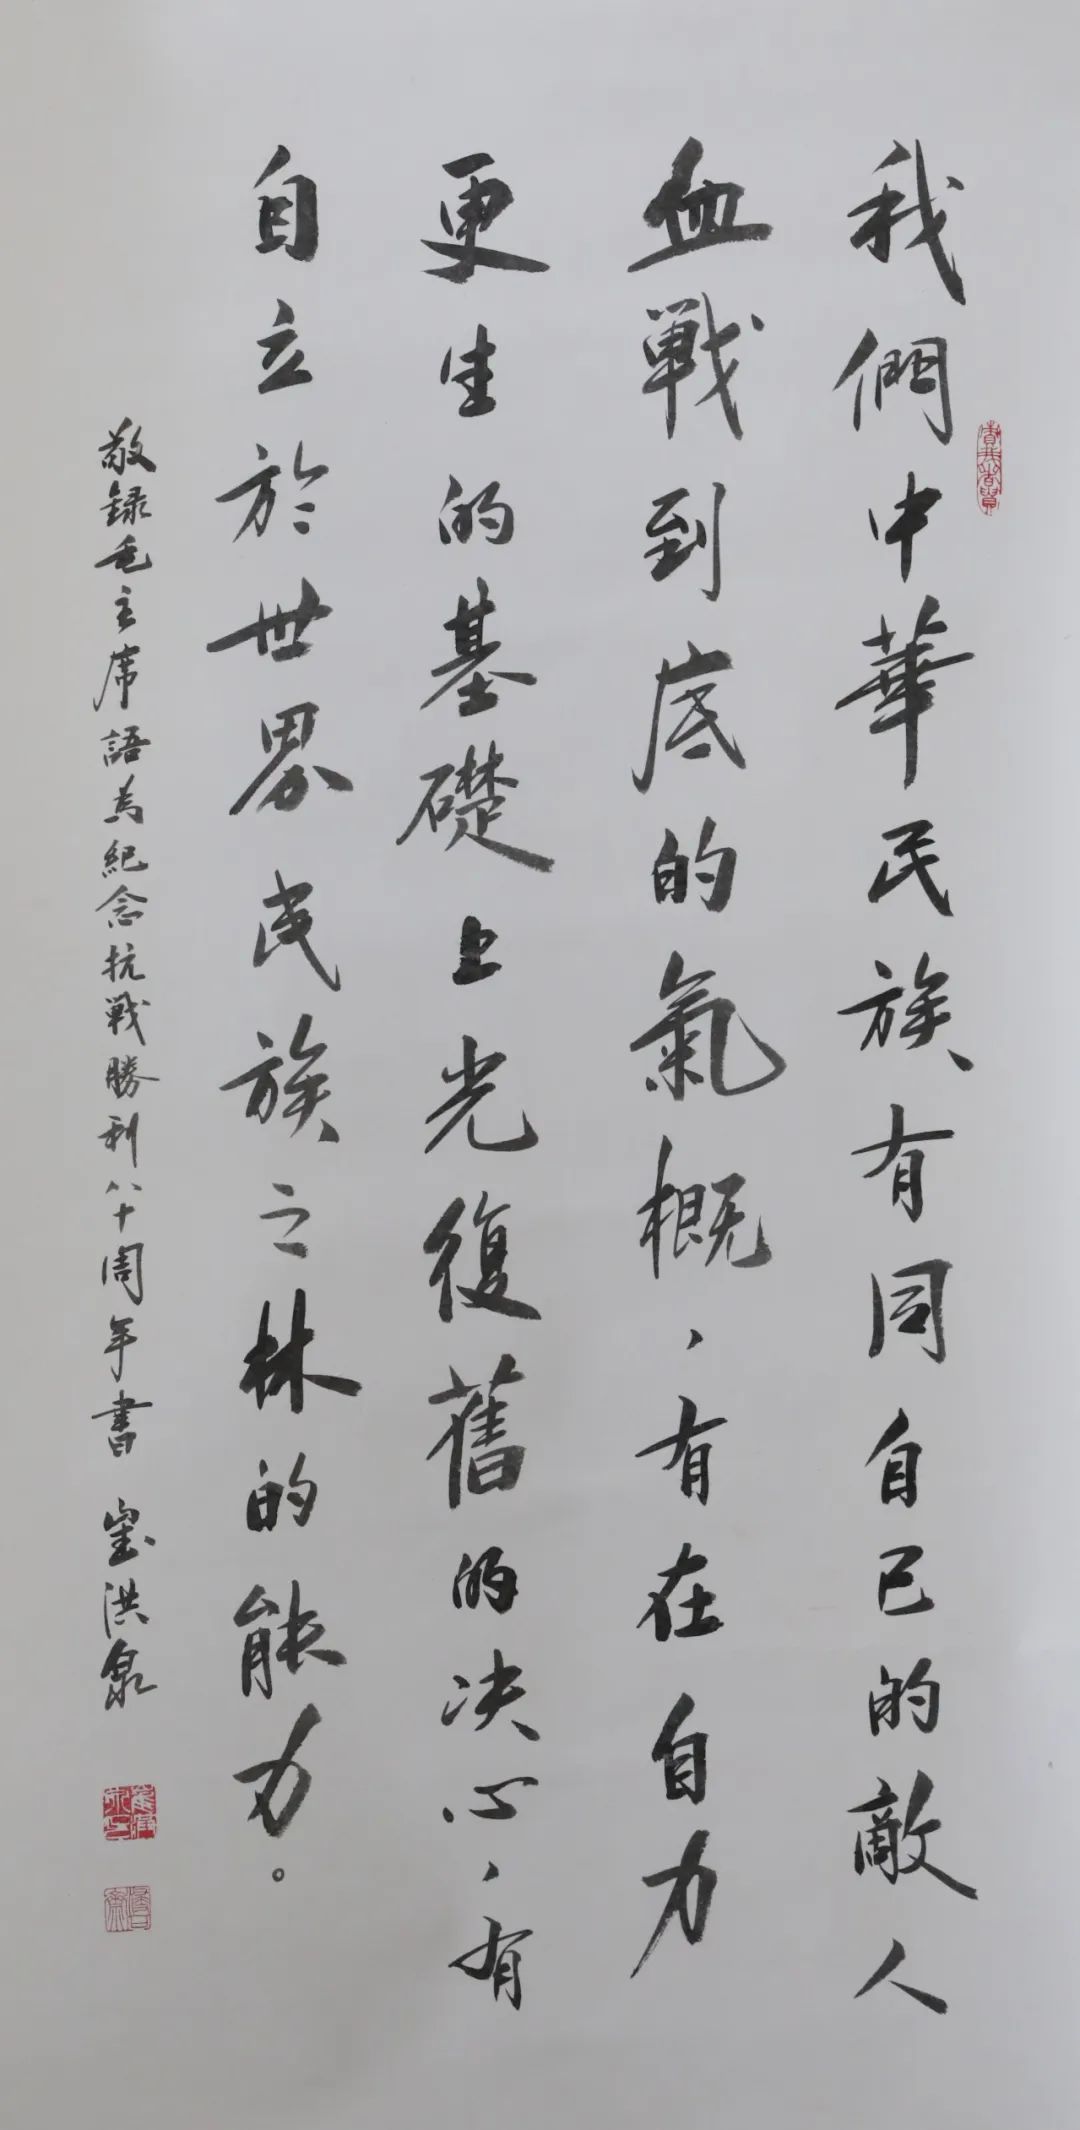 我們中華民族有同自己的敵人
血戰到底的氣概，有在自力
更生的基礎上光復舊的决心，有
自立於世界民族之林的能力。
敬録毛主席語為紀念抗戰勝利八十周年書 洪泉